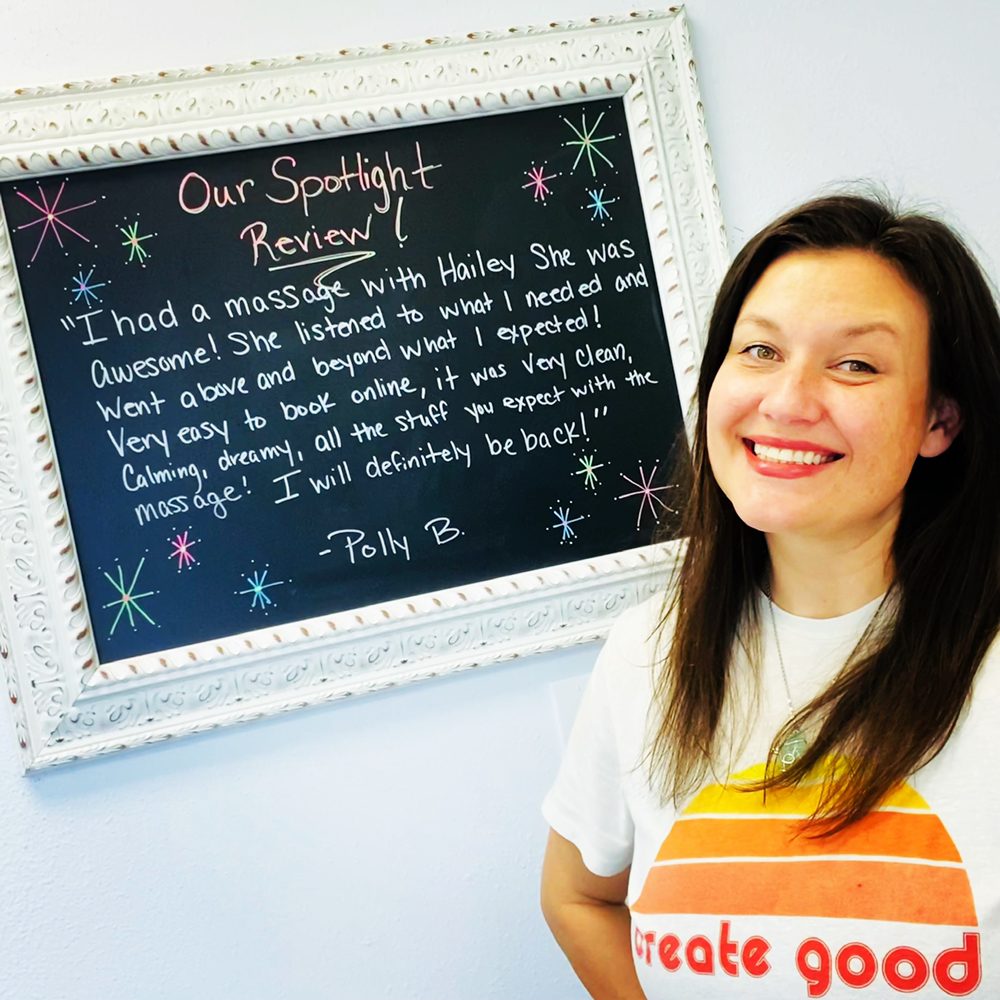 Our Spotlight
Review!
"I had a massage with Hailey She was
awesome! She listened to what I needed and
Went above and beyond what I expected!
Very easy to book online, it was very clean,
Calming, dreamy, all the stuff you expect with the
massage! I will definitely be back!"
-Polly B.
create good